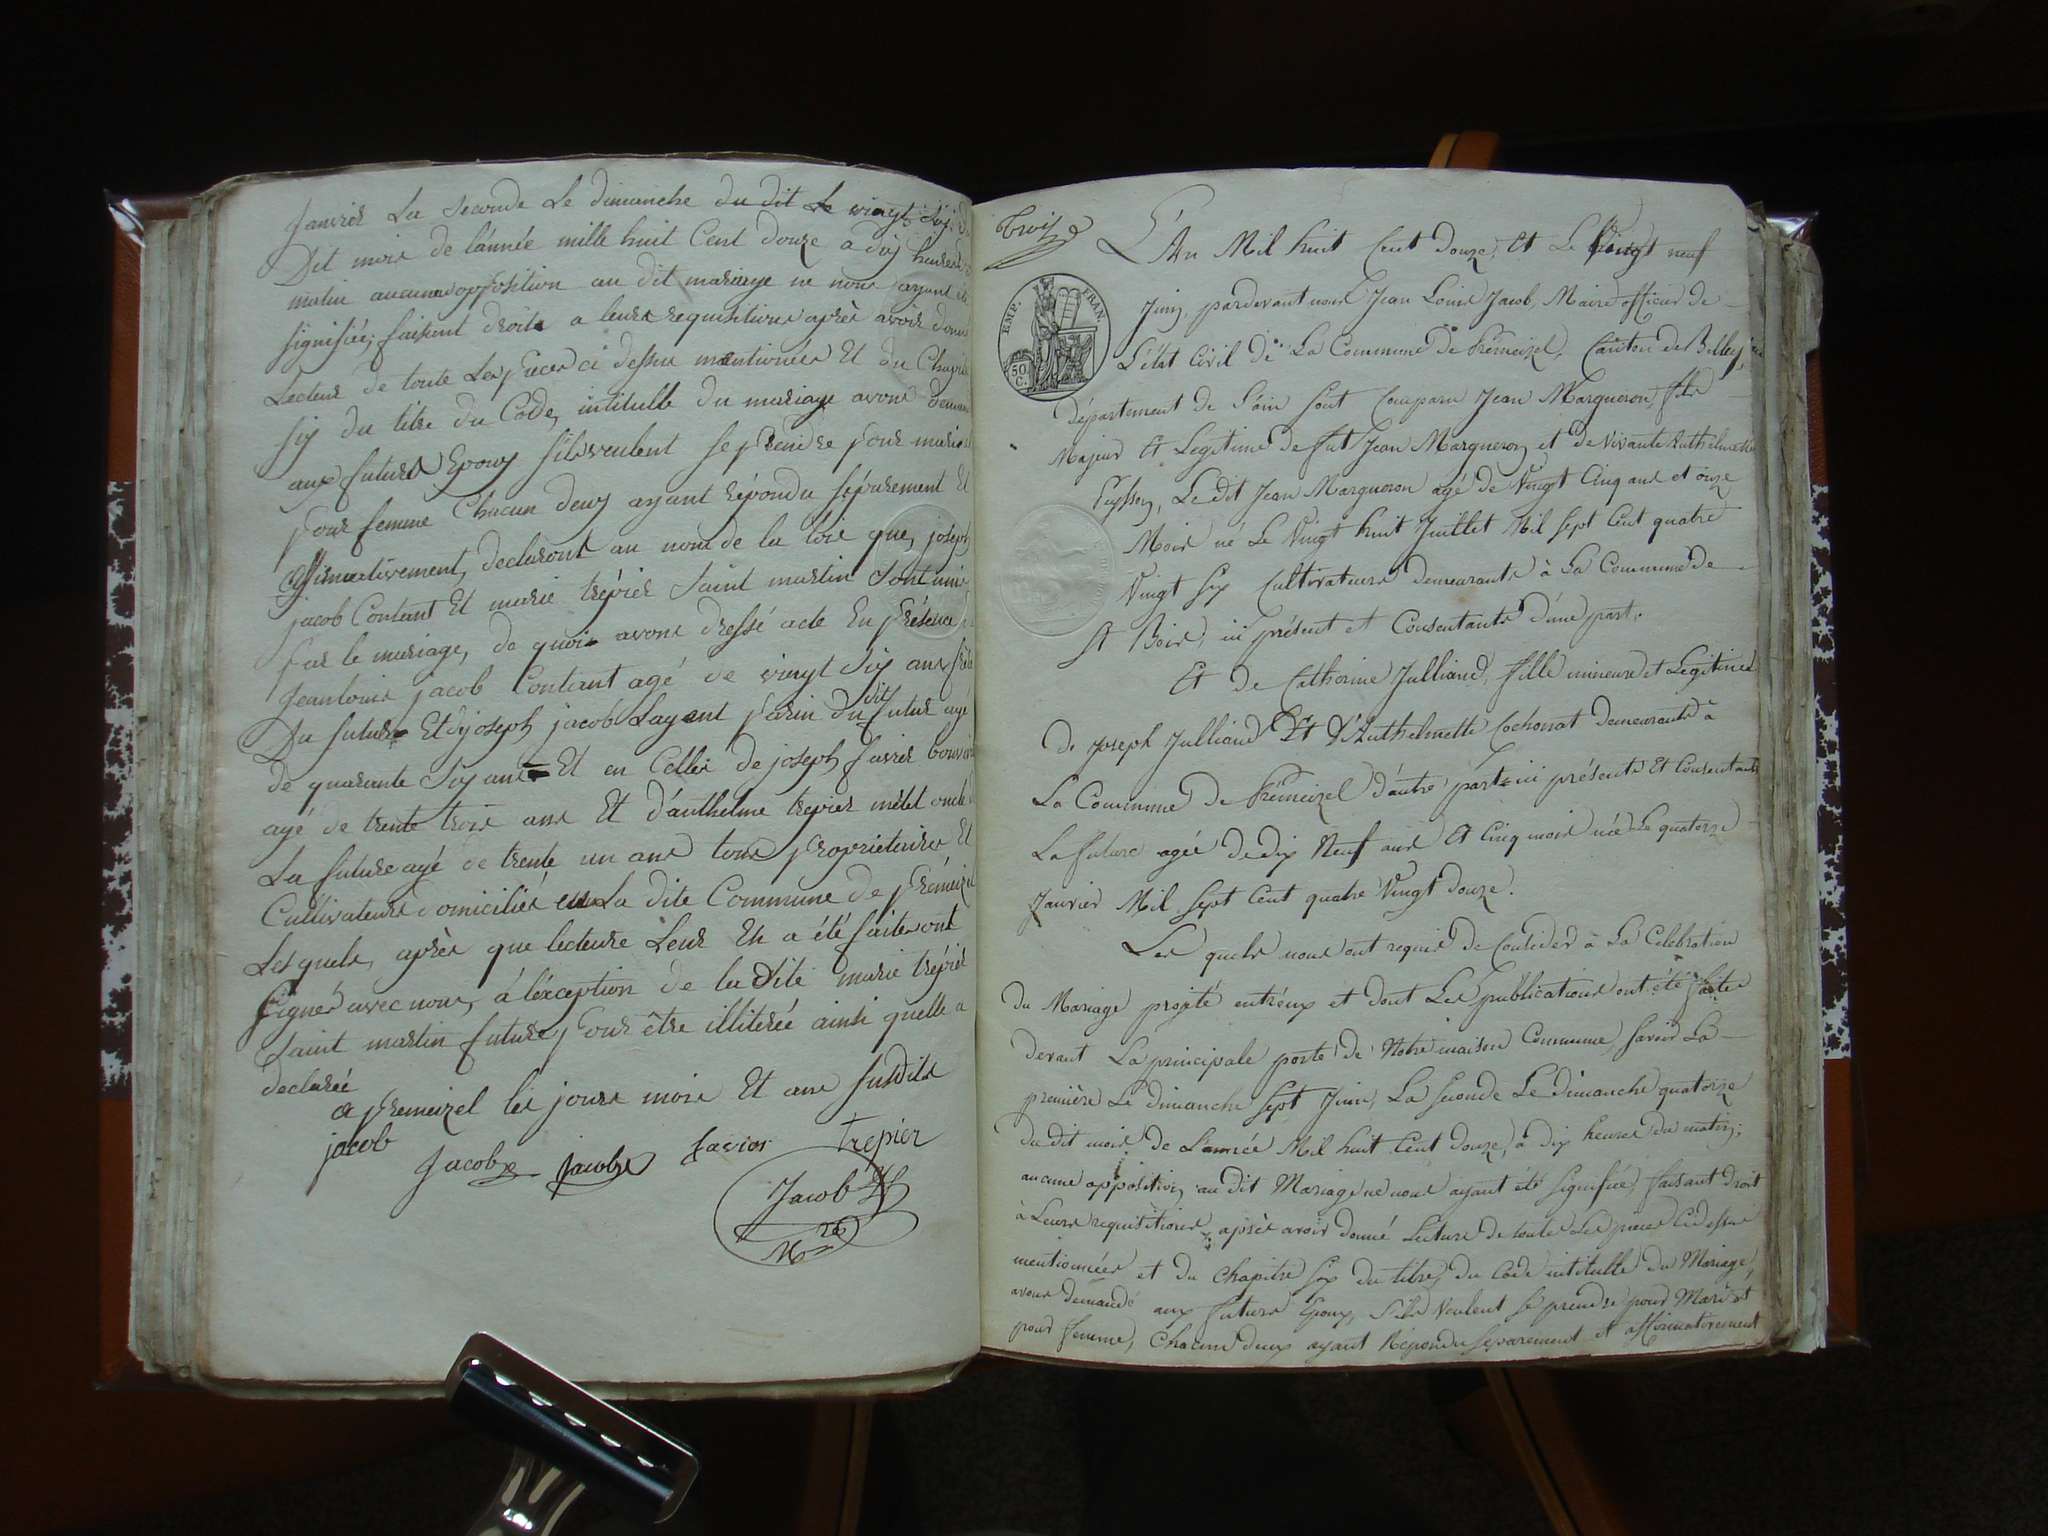 Janvier La seconde Le dimanche du dit Le vingt six du
Dit mois de l'année mille huit Cent douze a dix heures du
matin aucune opposition au dit mariage ne nous ayant été
signifiée; faisant droit a leurs requisitions après avoir donné
Lecteur de toute Les pieces ci dessus mentionées Et du Chapitre
six du titre du Code, intitullé du mariage avons demandé
aux futurs Epoux s'ils veulent se prendre pour mari et
pour femme Chacun deux ayant répondu séparement Et
affirmativement, declarons au nom de la loix que, joseph
jacob Contant Et marie trépier Saint martin sont unis
par le mariage, de quoi avons dressé acte En présence de
Jeanlouis jacob Contant agé de vingt six ans frère
Du futur Et de joseph jacob Layent parin du dit futur agé
de quarante six ans Et en Celles de joseph favier bouvier
agé de trente trois ans Et d'anthelme trepier métel oncle de
La future agé de trente un ans tous propriétaires Et
Cultivateurs domiciliés en La dite Commune de prémeizel
Lesquels, après que lecteure Leur En a été faite ont
signés avec nous, à l'exception de la dite marie trépier
Saint martin future pour être illiterée ainsi quelle a
declarée
a premeizel les jours mois Et ans susdits
jacob Jacob jacob favier trepier
Jacob
Mre
Trois
L'An Mil huit Cent Douze, Et Le Vingt neuf
EMP. FRAN.
50 C.
Juin, pardevant nous Jean Louis Jacob, Maire officier de
L'état Civil de La Commune de Prémeizel, Canton de Belley,
département de l'ain sont Comparu Jean Margueron, fils
Majeur Et Legitime de fut Jean Margueron, et de vivante Anthelmette
Peysson, Le dit Jean Margueron agé de Vingt Cinq ans et onze
Mois né Le Vingt huit Juillet Mil Sept Cent quatre
Vingt Six Cultivateurs demeurants à La Commune de
St Bois, ici présent et Consentants d'une part.
Et de Catherine Julliand, fille mineure et Legitime
de Joseph Julliand Et d'Anthelmette Cochonat demeurants à
La Commune de Prémeizel d'autre part ici présents Et Consentants
La future agée de dix Neuf ans Et Cinq mois née Le quatorze
Janvier Mil Sept Cent quatre Vingt douze.
Les quels nous ont requis de Conseder à La Celebration
du Mariage projeté entr'eux et dont Les publications ont été faites
devant La principale porte de Notre maison Commune, Savoir La
première Le dimanche Sept Juin, La Seconde Le dimanche quatorze
du dit mois de L'année Mil huit Cent douze, à dix heures du matin;
aucune opposition, au dit Mariage ne nous ayant été Signifiée, faisant droit
à Leurs requisitions, après avoir donné Lecture de toute Les pieces Cidessus
mentionnées et du Chapitre Six du titre du Code intitullé du Mariage,
avons demandé aux futurs Epoux, S'ils Veulent Se prendre pour Mari et
pour femme, Chacun deux ayant Répondu Séparement et affirmativement